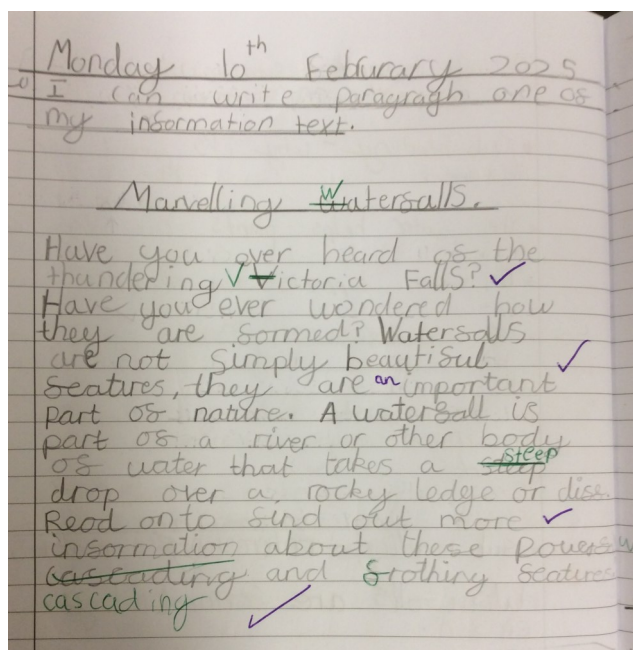 Monday 10th Feburary 2025
I can write paragragh one of
my information text.
Marvelling Waterfalls.
Have you ever heard of the
thundering Victoria Falls?
Have you ever wondered how
they are formed? Waterfalls
are not simply beautiful
features, they are an important
part of nature. A waterfall is
part of a river or other body
of water that takes a steep steep
drop over a rocky ledge or diff.
Read onto find out more
information about these powerful
cascading and frothing features
cascading